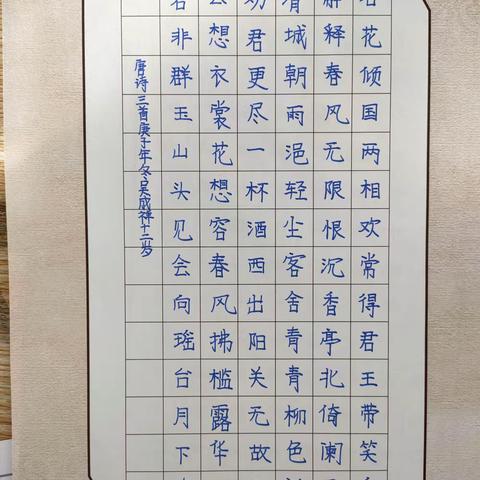 名花倾国两相欢常得君王带笑
解释春风无限恨沉香亭北倚阑
渭城朝雨浥轻尘客舍青青柳色
劝君更尽一杯酒西出阳关无故
云想衣裳花想容春风拂槛露华
若非群玉山头见会向瑶台月下
唐诗三首庚子年冬吴成祥十二岁